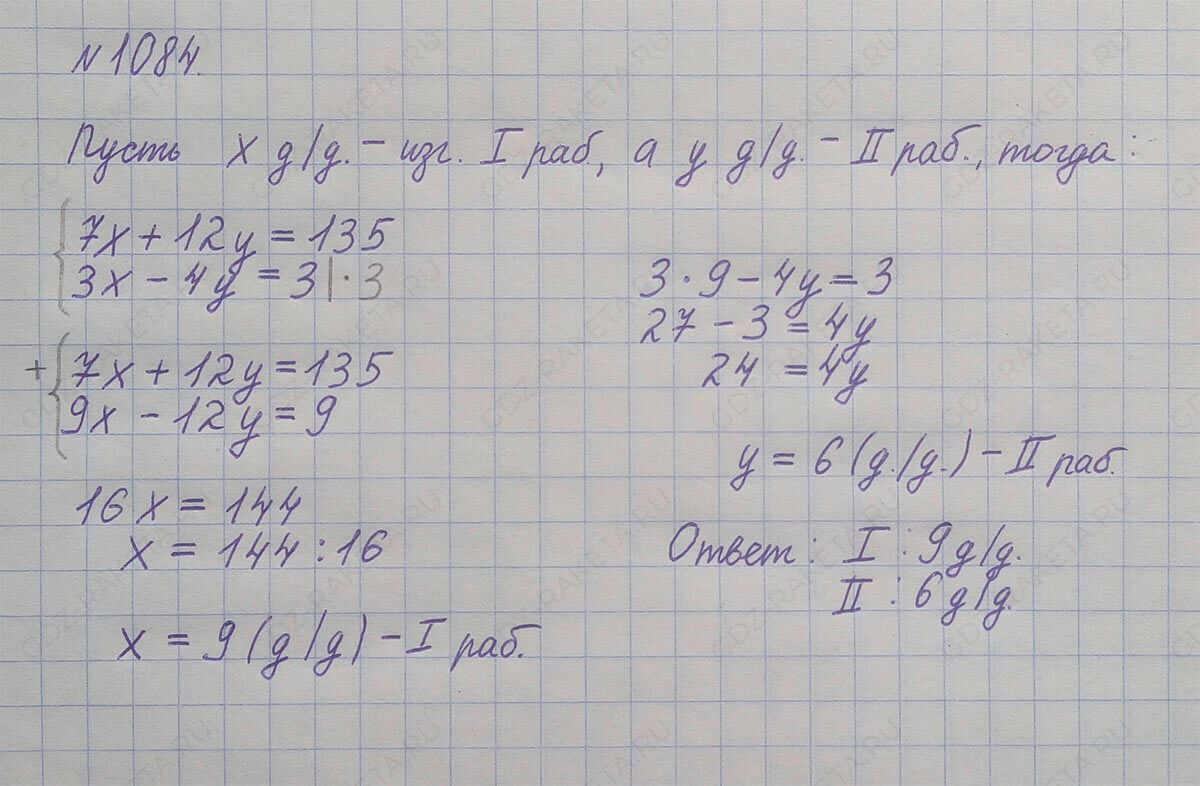 N 1084.
Пусть x д/д. – изг. I раб, а y д/д. – II раб., тогда:
7x + 12y = 135
3x – 4y = 3 | · 3
+ 7x + 12y = 135
9x – 12y = 9
16x = 144
x = 144 : 16
x = 9 (д/д) – I раб.
3 · 9 – 4y = 3
27 – 3 = 4y
24 = 4y
y = 6 (д./д.) – II раб.
Ответ: I : 9 д/д.
II : 6 д/д.